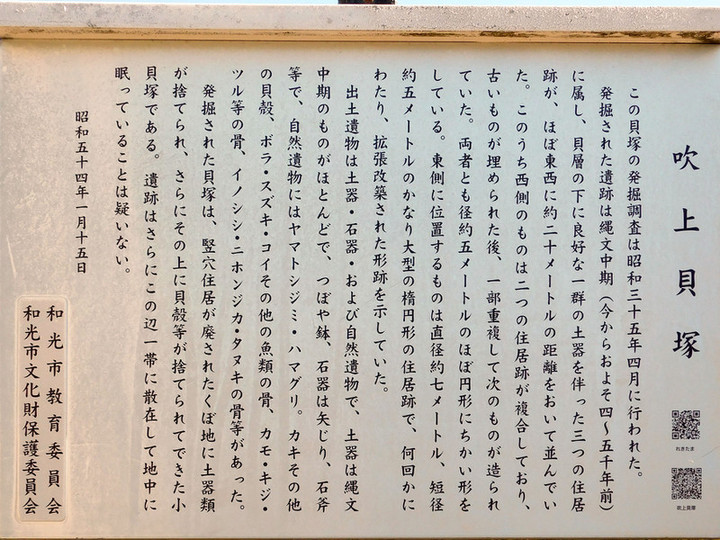 吹上貝塚
この貝塚の発掘調査は昭和三十五年四月に行われた。
発掘された遺跡は縄文中期（今からおよそ四～五千年前）
に属し、貝層の下に良好な一群の土器を伴った三つの住居
跡が、ほぼ東西に約二十メートルの距離をおいて並んでい
た。このうち西側のものは二つの住居跡が複合しており、
古いものが埋められた後、一部重複して次のものが造られ
ていた。両者とも径約五メートルのほぼ円形にちかい形を
している。東側に位置するものは直径約七メートル、短径
約五メートルのかなり大型の楕円形の住居跡で、何回かに
わたり、拡張改築された形跡を示していた。
出土遺物は土器・石器・および自然遺物で、土器は縄文
中期のものがほとんどで、つぼや鉢、石器は矢じり、石斧
等で、自然遺物にはヤマトシジミ・ハマグリ。カキその他
の貝殻、ボラ・スズキ・コイその他の魚類の骨、カモ・キジ・
ツル等の骨、イノシシ・ニホンジカ・タヌキの骨等があった。
発掘された貝塚は、竪穴住居が廃されたくぼ地に土器類
が捨てられ、さらにその上に貝殻等が捨てられてできた小
貝塚である。遺跡はさらにこの辺一帯に散在して地中に
眠っていることは疑いない。
昭和五十四年一月十五日
和光市教育委員会
和光市文化財保護委員会
れきたま
吹上貝塚